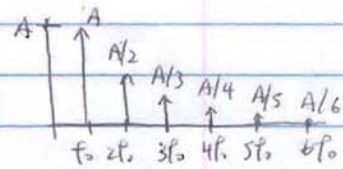 A A
A/2
A/3
A/4
A/5
A/6
f₀ 2f₀ 3f₀ 4f₀ 5f₀ 6f₀